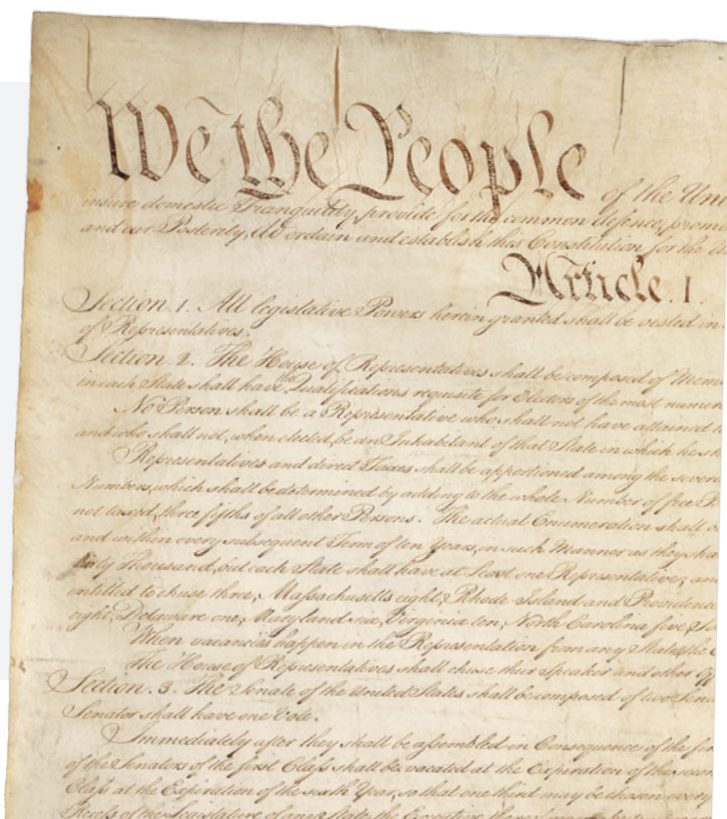 We the People of the Uni
insure domestic Tranquility, provide for the common defence, promo
and our Posterity, do ordain and establish this Constitution for the
Article. I.
Section. 1. All legislative Powers herein granted shall be vested in
of Representatives.
Section. 2. The House of Representatives shall be composed of Mem
in each State shall have the Qualifications requisite for Electors of the most numer
No Person shall be a Representative who shall not have attained t
and who shall not, when elected, be an Inhabitant of that State in which he sh
Representatives and direct Taxes shall be apportioned among the severa
Numbers, which shall be determined by adding to the whole Number of free P
not taxed, three fifths of all other Persons. The actual Enumeration shall
and within every subsequent Term of ten Years, in such Manner as they sha
thirty Thousand, but each State shall have at Least one Representative; an
entitled to chuse three, Massachusetts eight, Rhode Island and Providence
eight, Delaware one, Maryland six, Virginia ten, North Carolina five, So
When vacancies happen in the Representation from any State, the
The House of Representatives shall chuse their Speaker and other Of
Section. 3. The Senate of the United States shall be composed of two Sena
Senator shall have one Vote.
Immediately after they shall be assembled in Consequence of the fir
of the Senators of the first Class shall be vacated at the Expiration of the secon
Class at the Expiration of the sixth Year, so that one third may be chosen every
Recess of the Legislature of any State, the Executive thereof